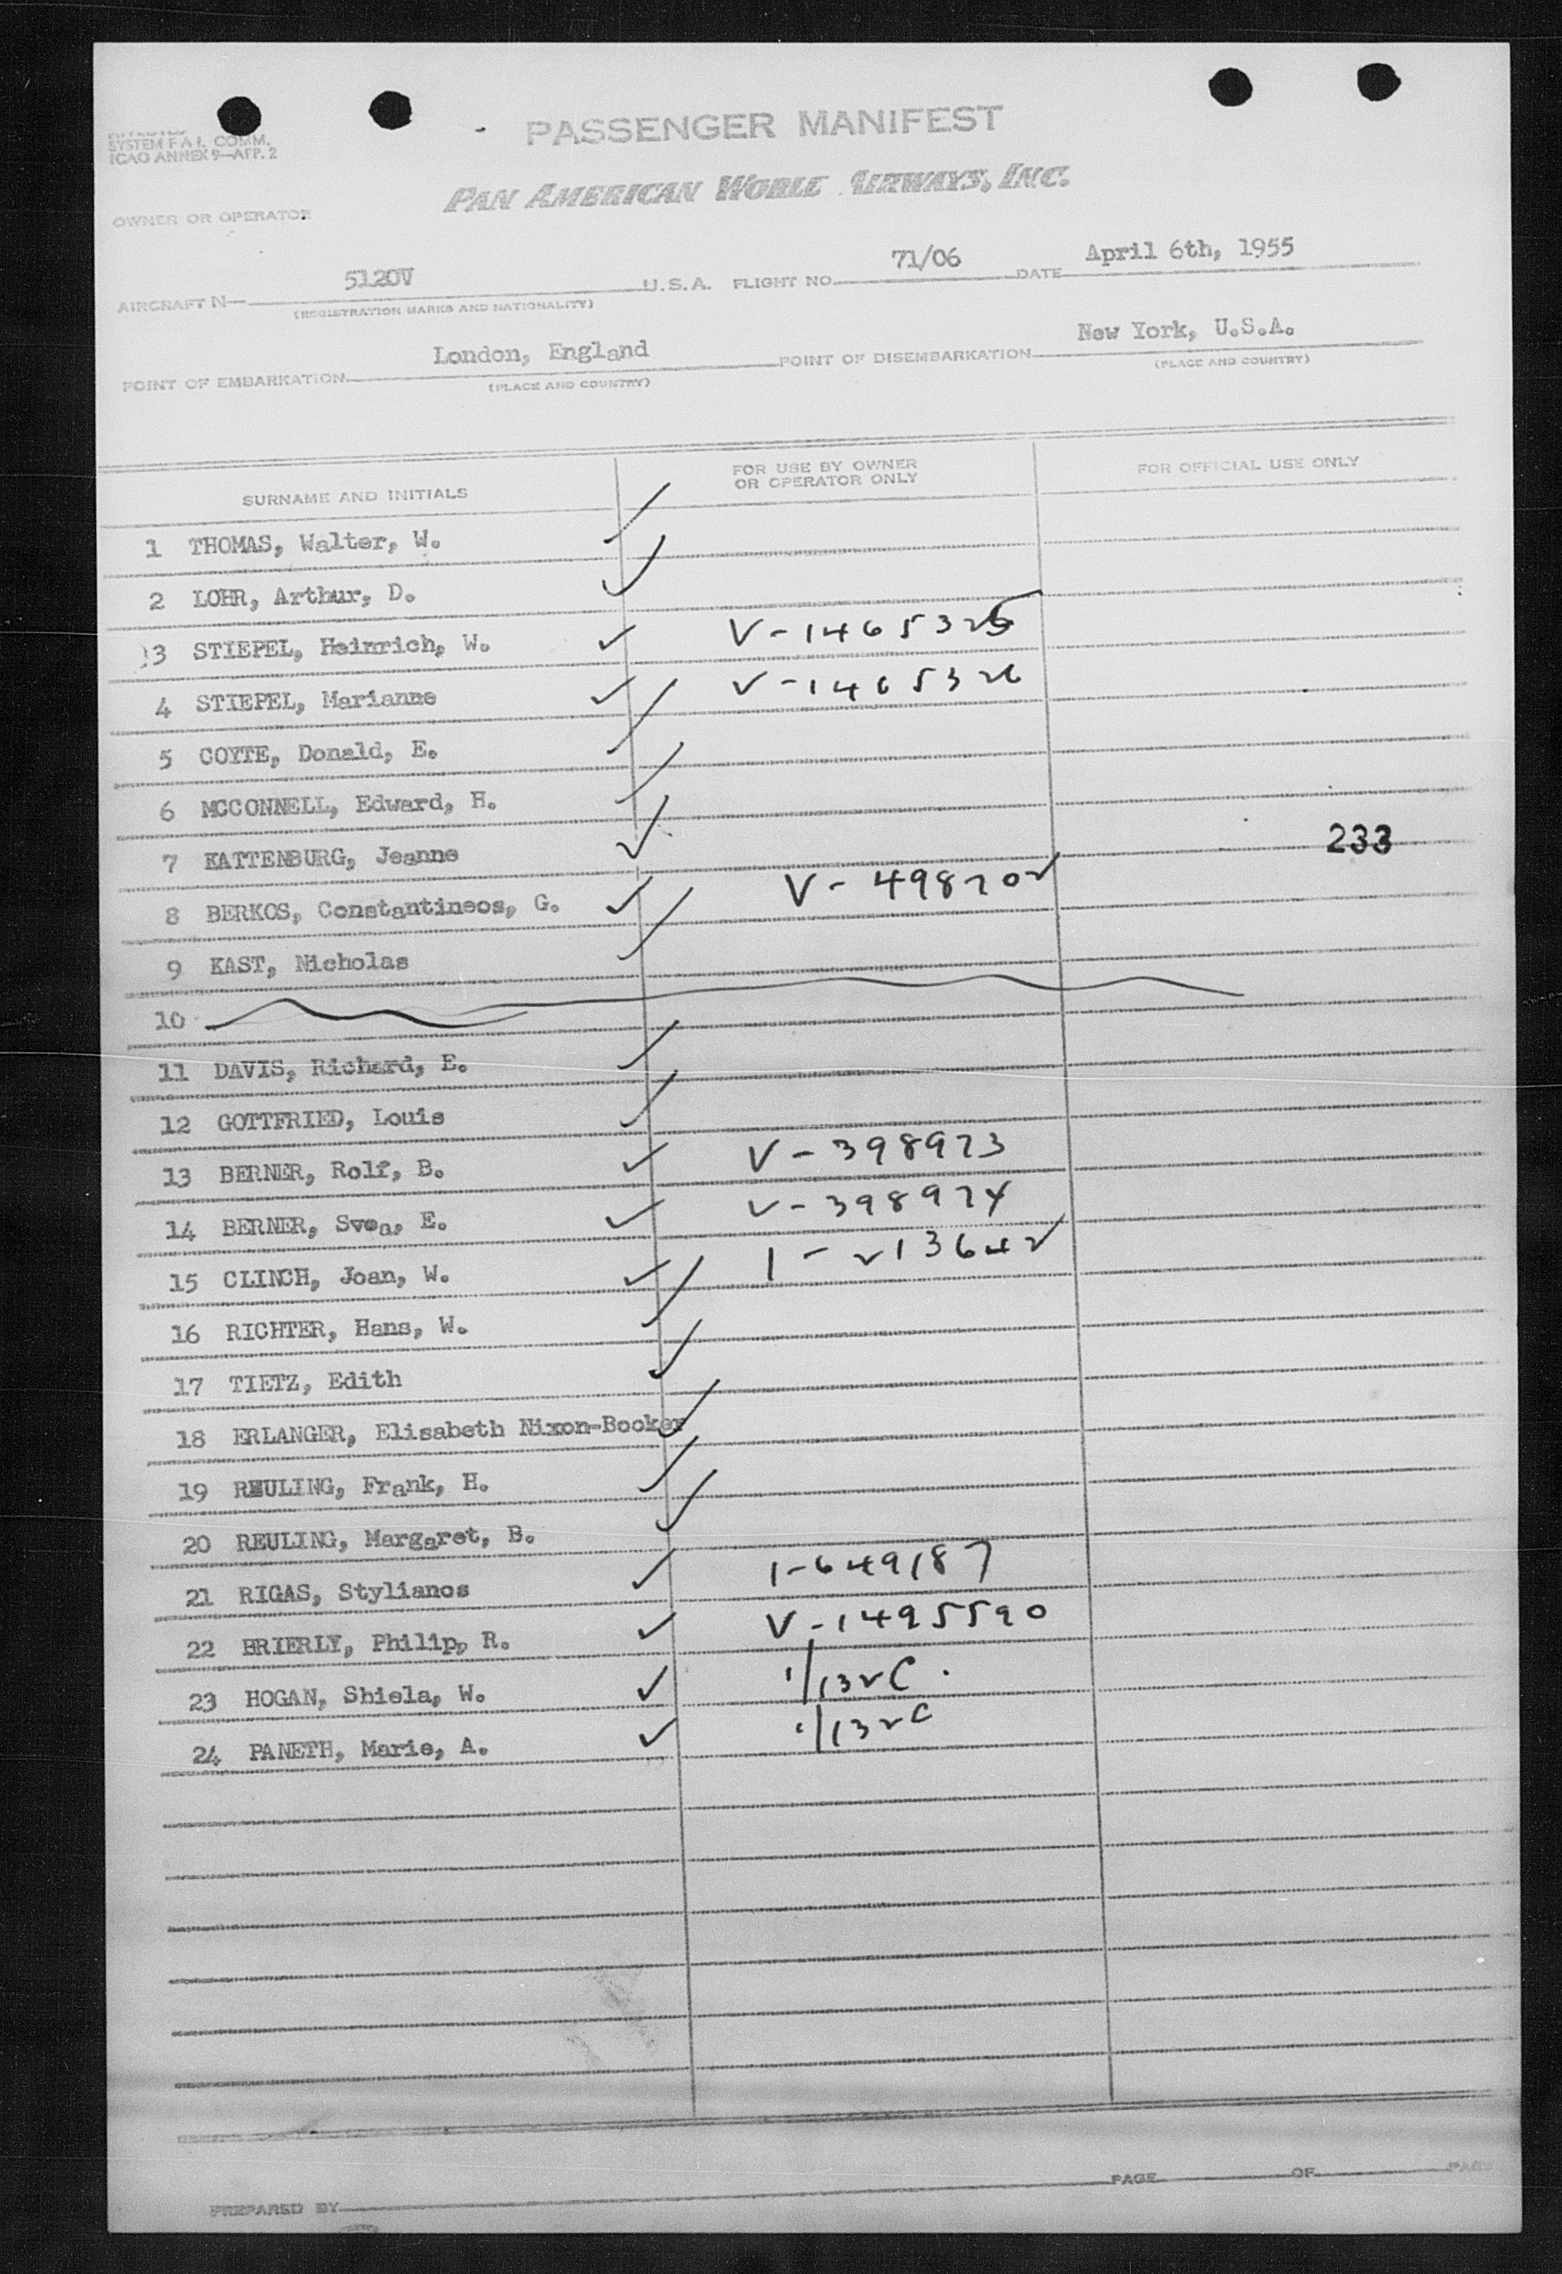 SYSTEM F A L COMM.
ICAO ANNEX 9—APP. 2
PASSENGER MANIFEST
PAN AMERICAN WORLD AIRWAYS, INC.
OWNER OR OPERATOR
AIRCRAFT N— 5120V U.S.A. FLIGHT NO. 71/06 DATE April 6th, 1955
(REGISTRATION MARKS AND NATIONALITY)
POINT OF EMBARKATION London, England POINT OF DISEMBARKATION New York, U.S.A.
(PLACE AND COUNTRY) (PLACE AND COUNTRY)
SURNAME AND INITIALS FOR USE BY OWNER OR OPERATOR ONLY FOR OFFICIAL USE ONLY
1 THOMAS, Walter, W.
2 LOHR, Arthur, D.
3 STIEPEL, Heinrich, W. V-1465325
4 STIEPEL, Marianne V-1465326
5 COYTE, Donald, E.
6 MCCONNELL, Edward, H.
7 KATTENBURG, Jeanne 233
8 BERKOS, Constantineos, G. V-498702
9 KAST, Nicholas
10
11 DAVIS, Richard, E.
12 GOTTFRIED, Louis
13 BERNER, Rolf, B. V-398973
14 BERNER, Sven, E. V-398974
15 CLINCH, Joan, W. 1-213642
16 RICHTER, Hans, W.
17 TIETZ, Edith
18 ERLANGER, Elisabeth Nixon-Booker
19 REULING, Frank, H.
20 REULING, Margaret, B.
21 RIGAS, Stylianos 1-649187
22 BRIERLY, Philip, R. V-1495590
23 HOGAN, Shiela, W. 1/132C.
24 PANETH, Marie, A. 1/132C
PAGE OF PAGE
PREPARED BY